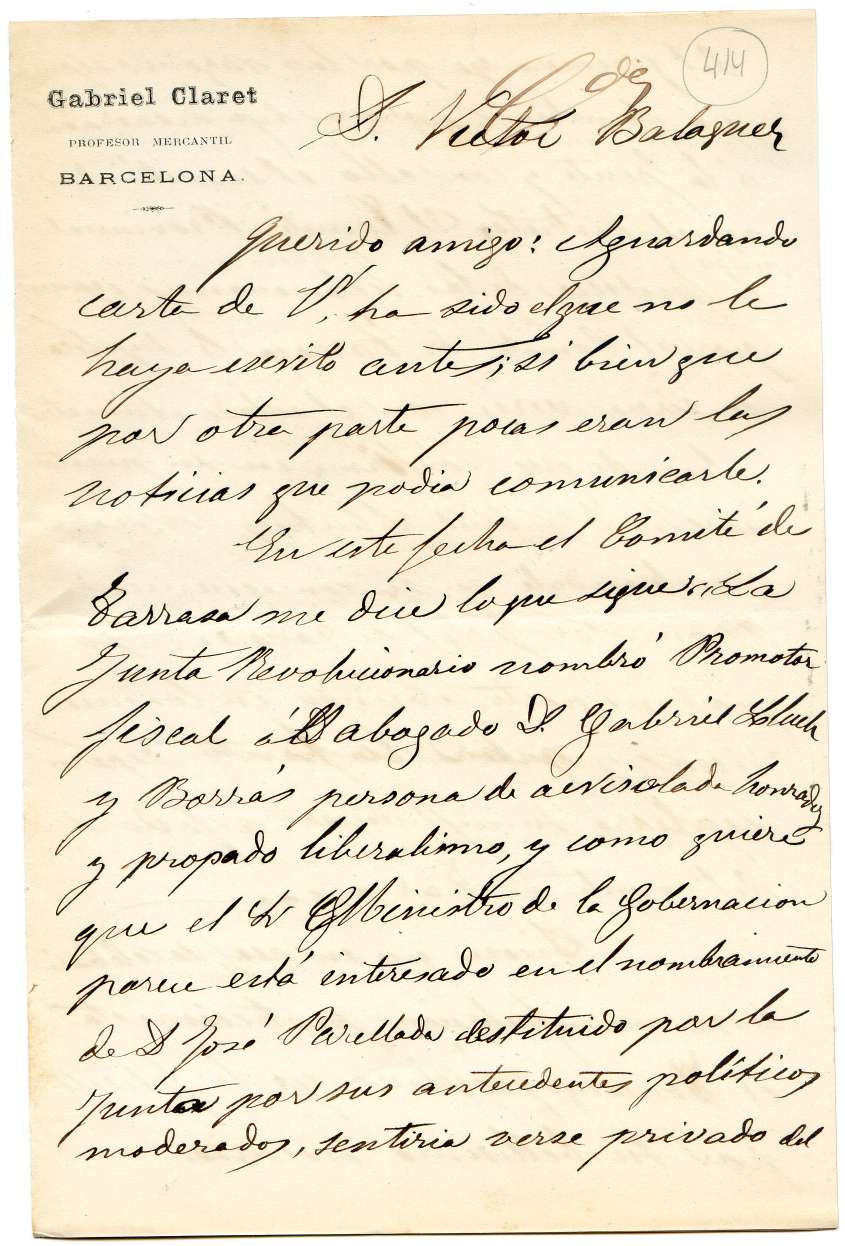 414
Gabriel Claret
PROFESOR MERCANTIL
BARCELONA.
D. Victor Balaguer
Querido amigo: Aguardando
carta de V, ha sido el que no le
haya escrito antes; si bien que
por otra parte pocas eran las
noticias que podia comunicarle.
En este fecha el Comité de
Tarrasa me dice lo que sigue: "La
Junta Revolucionario nombró Promotor
fiscal á abogado D. Gabriel Lluch
y Borrás persona de acrisolada honradez
y propado liberalismo, y como quiere
que el Sr Ministro de la Gobernacion
parece está interesado en el nombramiento
de D José Parellada destituido por la
Junta por sus antecedentes políticos
moderados, sentiria verse privado del